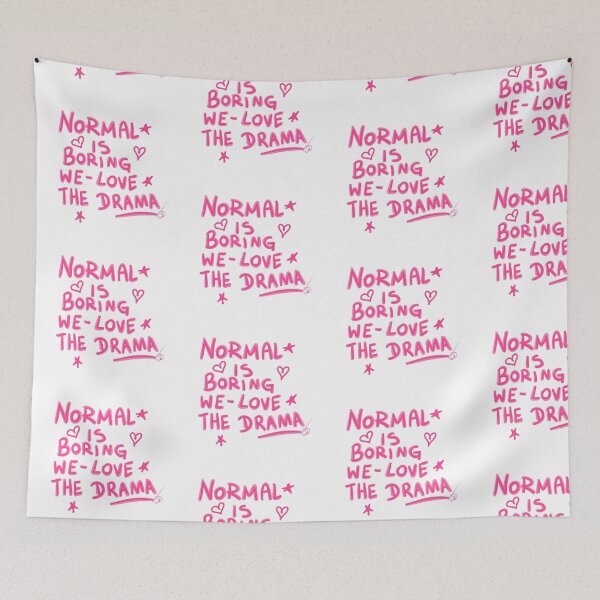 NORMAL
IS
BORING
WE-LOVE
THE DRAMA
NORMAL
IS
BORING
WE-LOVE
THE DRAMA
NORMAL
IS
BORING
WE-LOVE
THE DRAMA
IS
BORING
WE-LOVE
THE DRAMA
NORMAL
IS
BORING
WE-LOVE
THE DRAMA
NORMAL
IS
BORING
WE-LOVE
THE DRAMA
NORMAL
IS
BORING
NORMAL
IS
BORING
WE-LOVE
THE DRAMA
NORMAL
IS
BORING
WE-LOVE
THE DRAMA
NORMAL
IS
BORING
WE-LOVE
THE DRAMA
IS
BORING
WE-LOVE
THE DRAMA
NORMAL
IS
BORING
WE-LOVE
THE DRAMA
NORMAL
IS
BORING
WE-LOVE
THE DRAMA
NORMAL
IS